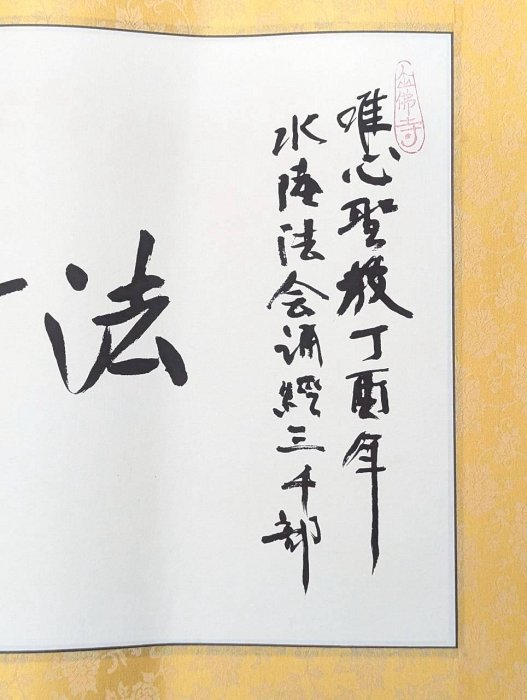 仙佛寺
唯心聖教丁酉年
水陸法会诵經三千部
法